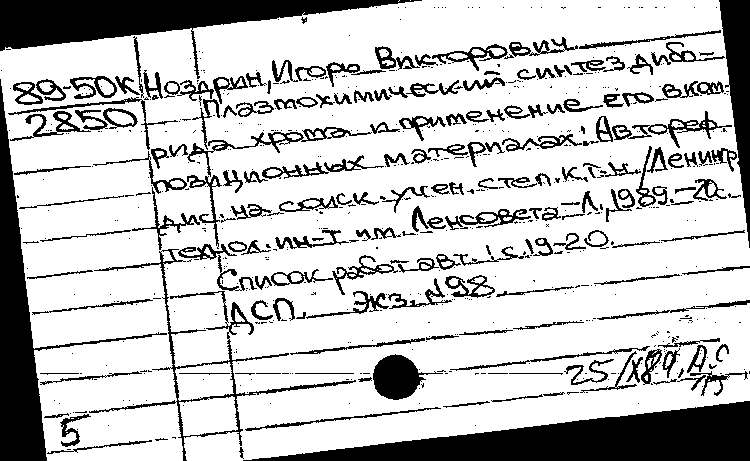 89-50К Ноздрин, Игорь Викторович
2850 Плазмохимический синтез дибо-
рида хрома и применение его в ком-
позиционных материалах: Автореф.
дис. на соиск. учен. степ. к.т.н. / Ленингр.
технол. ин-т им. Ленсовета.-Л., 1989.-20с.
Список работ авт.: с.19-20.
ДСП. Экз. №98.
25/X89.
5